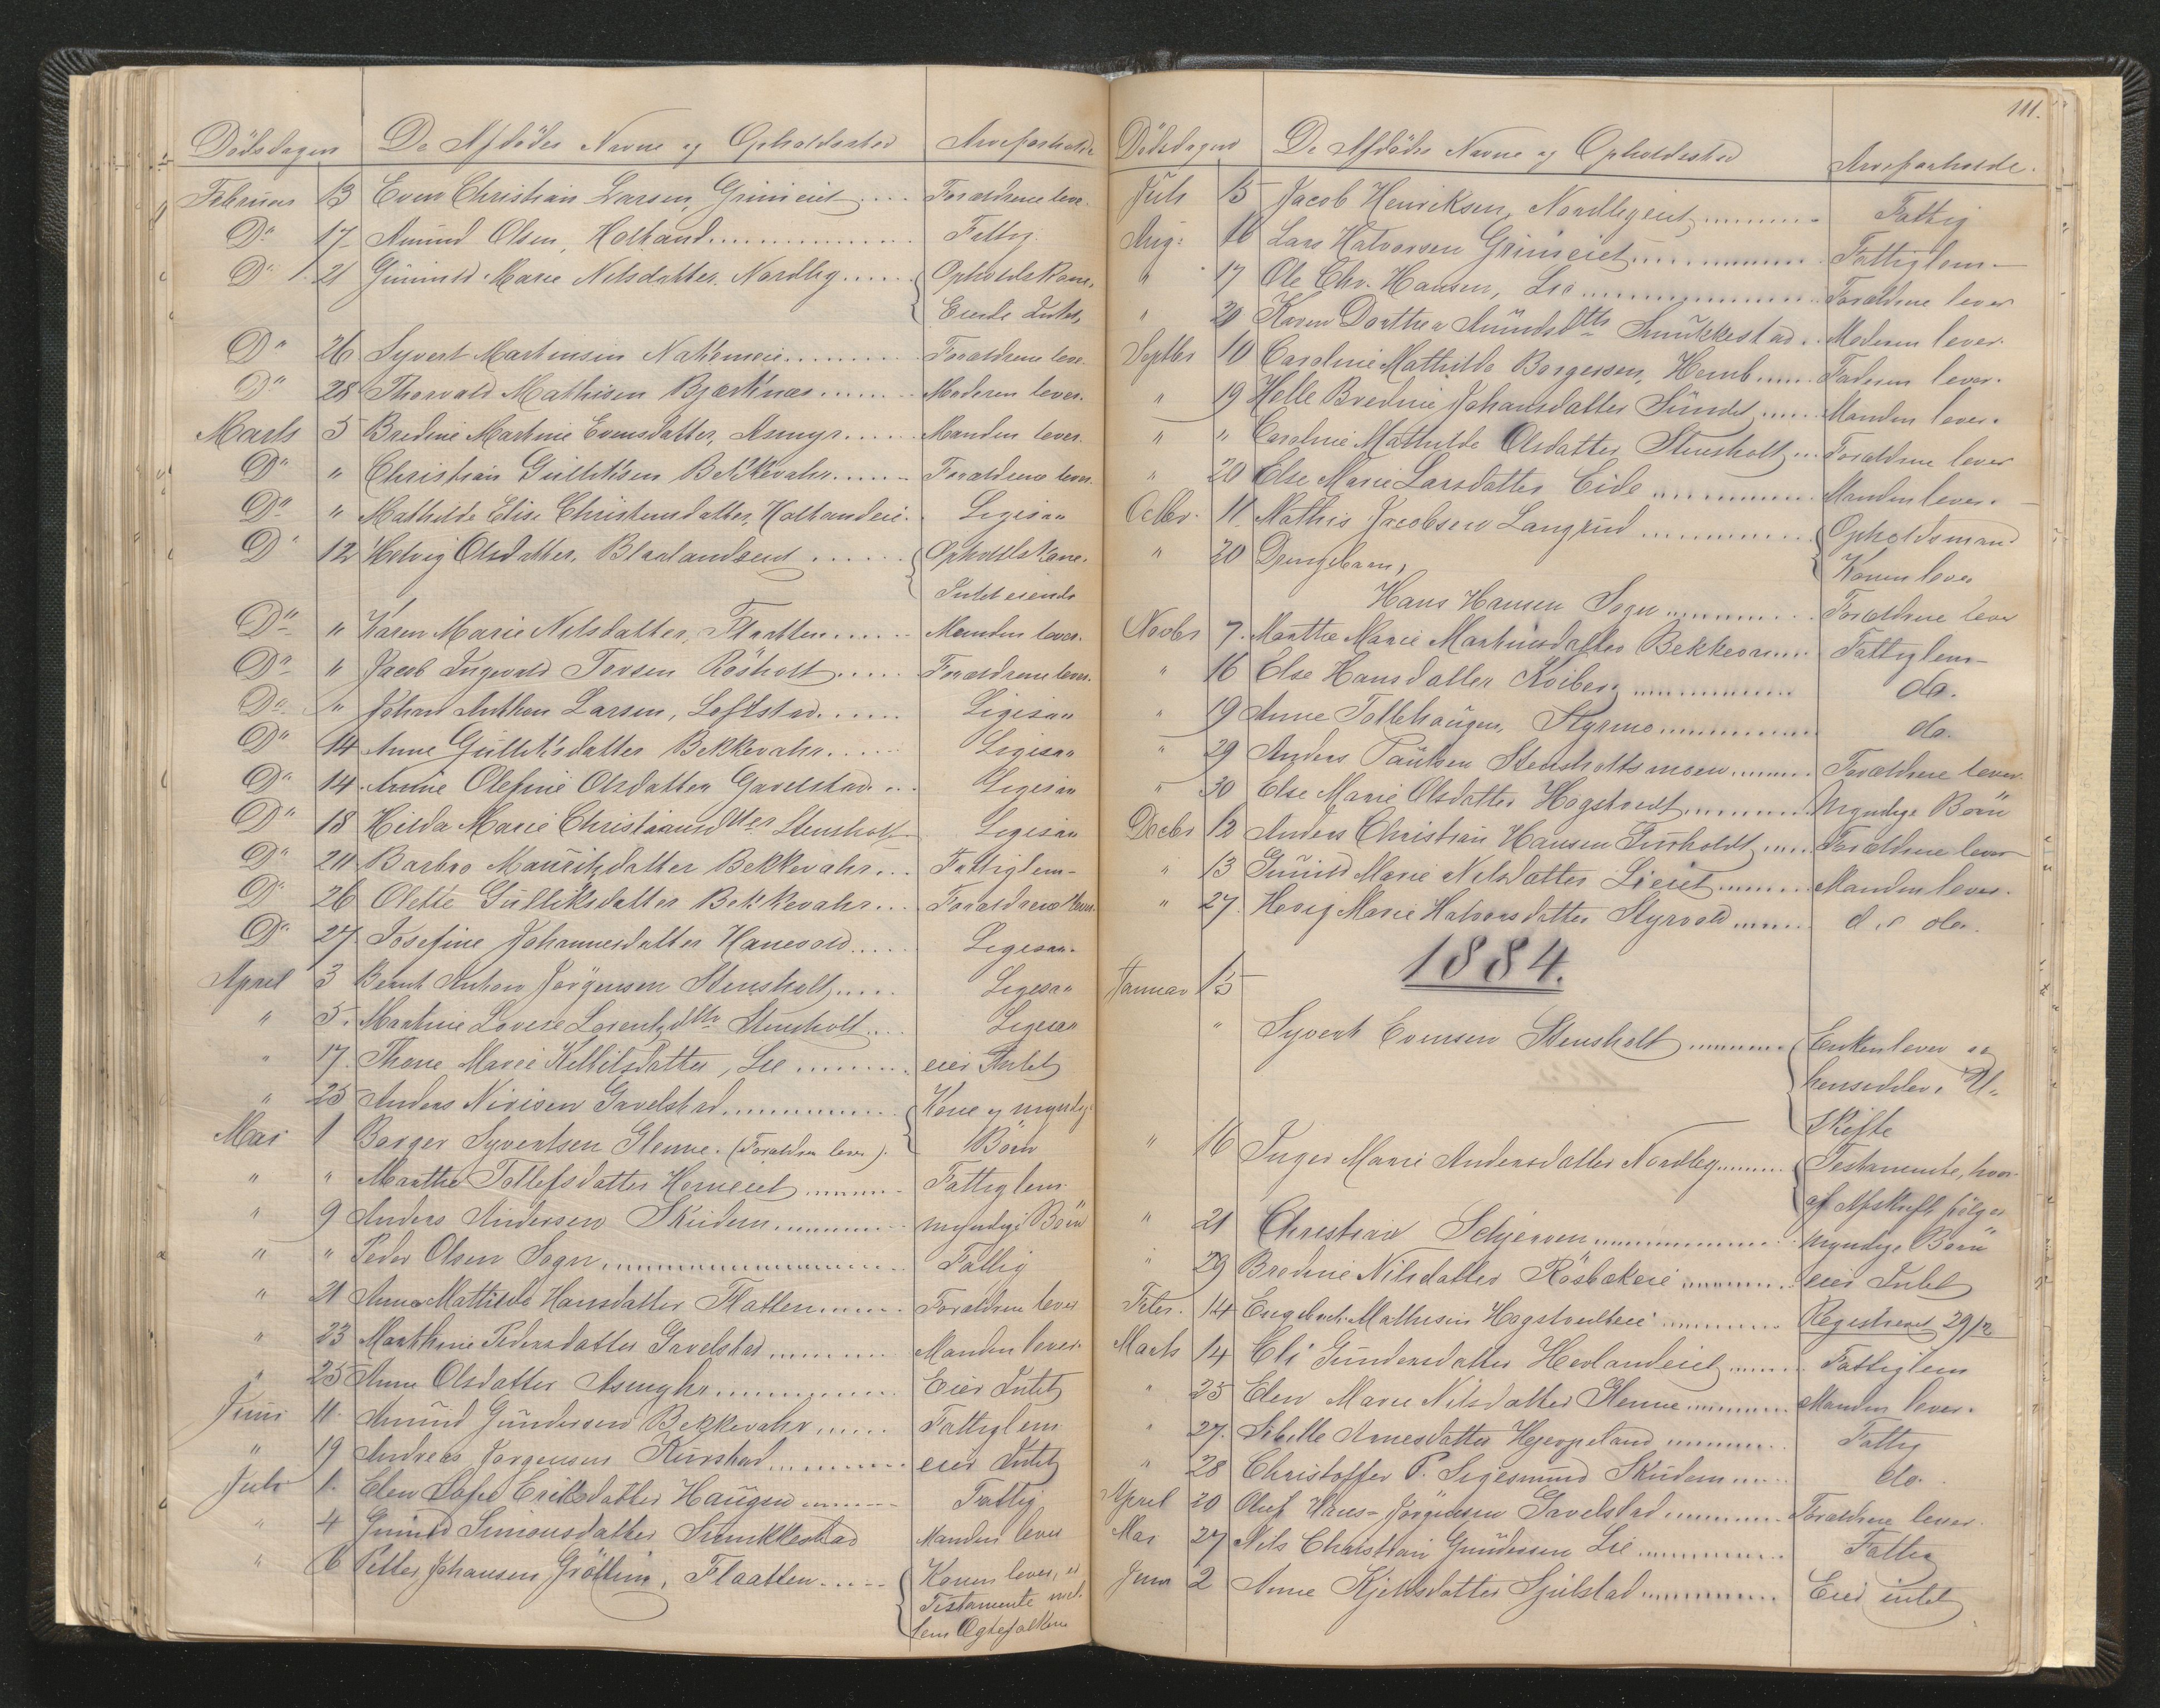 Dödsdagen De Afdödes Navne og Opholdssted Arveforholde
Februar 13 Even Christian Larsen, Grimeiet .... Forældrene leve.
Do 17 Amund Olsen, Holtand ........ Fattig.
Do 21 Gunnild Marie Nilsdatter, Nordby ...... Opholdskone,
Eiende Intet,
Do 26 Syvert Martinsen ........ Forældrene leve.
Do 28 Thorvald Mathisen Bjerknæs ....... Moderen lever.
Marts 5 Bredine Martine Evensdatter, Asmyr ...... Manden lever.
Do " Christian Gulliksen Bekkevahr ...... Forældrene lever.
Do " Mathilde Elise Christensdatter, Holtandeie. Ligesaa
Do 12 Helvig Olsdatter, ...... Opholdskone.
Intet eiende
Do " Karen Marie Nilsdatter, Flaatten ...... Manden lever.
Do " Jacob Ingevald Iversen Rösholt ..... Forældrene lever.
Do " Johan Anthon Larsen, Löfstad ...... Ligesaa
Do 14 Anne Gulliksdatter Bekkevahr ..... Ligesaa
Do 14 Annie Olefine Olsdatter Gavelstad ... Ligesaa
Do 18 Hilda Marie Christiansdtter Stensholt Ligesaa
Do 20 Barbro Mauritzdatter Bekkevahr ... Fattiglem
Do 26 Olette Gulliksdatter Bekkevahr ... Forældrene lever.
Do 27 Josefine Johannesdatter Hanevold ..... Ligesaa.
April 3 Bernt Anton Jörgensen Stensholt ..... Ligesaa
" 5. Martine Lovise Lorentzdttr Stensholt ... Ligesaa
" 17. Thone Marie Kittilsdatter, Lie ......... eier Intet
" 25 Anders Nirisen Gavelstad ........ Kone og myndige
Mai 1 Borger Syvertsen Glenne. (Forældren lever). Börn
" " Marthe Tollefsdatter Horneiet ....... Fattiglem
" 9 Anders Andersen Skudem ........ myndige Börn
" " Peder Olsen Sogn ........ Fattig
" 21 Anna Mathilde Hansdatter Flatten ....... Forældrene lever
" 23 Marthine Pedersdatter Gavelstad ........ Manden lever.
" 25 Anne Olsdatter Asmyhr ........ Eier Intet
Juni 11. Amund Gundersen Bekkevahr ...... Fattiglem
" 19 Andreas Jörgensen ........ eier Intet
Juli 1. Elen Sofie Eriksdatter Haugen ....... Fattig
" 4 Gunild Simonsdatter Smukkestad Manden lever
" 6 Petter Johansen Gröttin, Flaatten ..... Konen lever, er
Testamente mel-
lem Ægtefolkene
111.
Dödsdagen De Afdödes Navne og Opholdssted Arveforholde.
Juli 15 Jacob Henriksen, Nordbyeiet ........ Fattig
Aug: 16 Lars Halvorsen Grimeiet ........ Fattiglem
" 17 Ole Chr. Hansen, Lie ........ Forældrene lever
" 20 Karen Dorthea Amundsdttr Smukkestad . Moderen lever.
Septbr 10 Caroline Mathilde Borgersen, Homb ..... Faderen lever.
" 19 Helle Bredine Johansdatter Sundet ..... Manden lever.
" " Caroline Mathilde Olsdatter Stensholt ... Forældrene lever
" 20 Else Marie Larsdatter Eide ........ Manden lever.
Octbr. 11. Mathis Jacobsen Langrud ........ Opholdsmand
" 20 Drengebarn, Konen lever
Hans Hansen Sogn ........ Forældrene lever
Novbr 7. Marthe Marie Martinsdatter Bekkevar .... Fattiglem
" 16 Else Hansdatter Kviberg ........ do.
" 19 Anne Tollehaugen, Styrmo ........ do.
" 29 Anders Paulsen Stensholtsmoen ....... Forældrene lever
" 30 Else Marie Olsdatter Hogstvedt ........ Myndige Börn
Decbr 12 Anders Christian Hansen Furholdt ..... Forældrene lever
" 13 Gunild Marie Nilsdatter Lieiet ........ Manden lever.
" 27. Hevig Marie Halvorsdatter Styrvold ....... do do.
1884.
Januar 15
" Syvert Evensen Stensholt ........ Enken lever og
hensidder i U-
skifte
" 16 Inger Marie Andersdatter Nordby ........ Testamente, hvor-
af Afskrift fölger
" 21 Christian Schjerven ........ Myndige Börn
" 29 Bredine Nilsdatter Rösbækeie ........ eier Intet
Febr. 14 Engebret Mathisen Hogstvedteie ........ Registreret 29/2
Marts 14 Eli Gundersdatter Hevlandeiet ....... Fattiglem
" 25 Elen Marie Nilsdatter Glenne ........ Manden lever.
" 27. Sibille Arnesdatter Hjerpeland ........ Fattig
" 28 Christoffer P. Segesmund Skudem ...... do.
April 20 Oluf Hans-Jörgensen Gavelstad ........ Forældrene lever.
Mai 27 Nils Christian Gundersen Lie ........ Fattig
Juni 2 Anne Kjeldsdatter Sjulstad ........ Eier intet